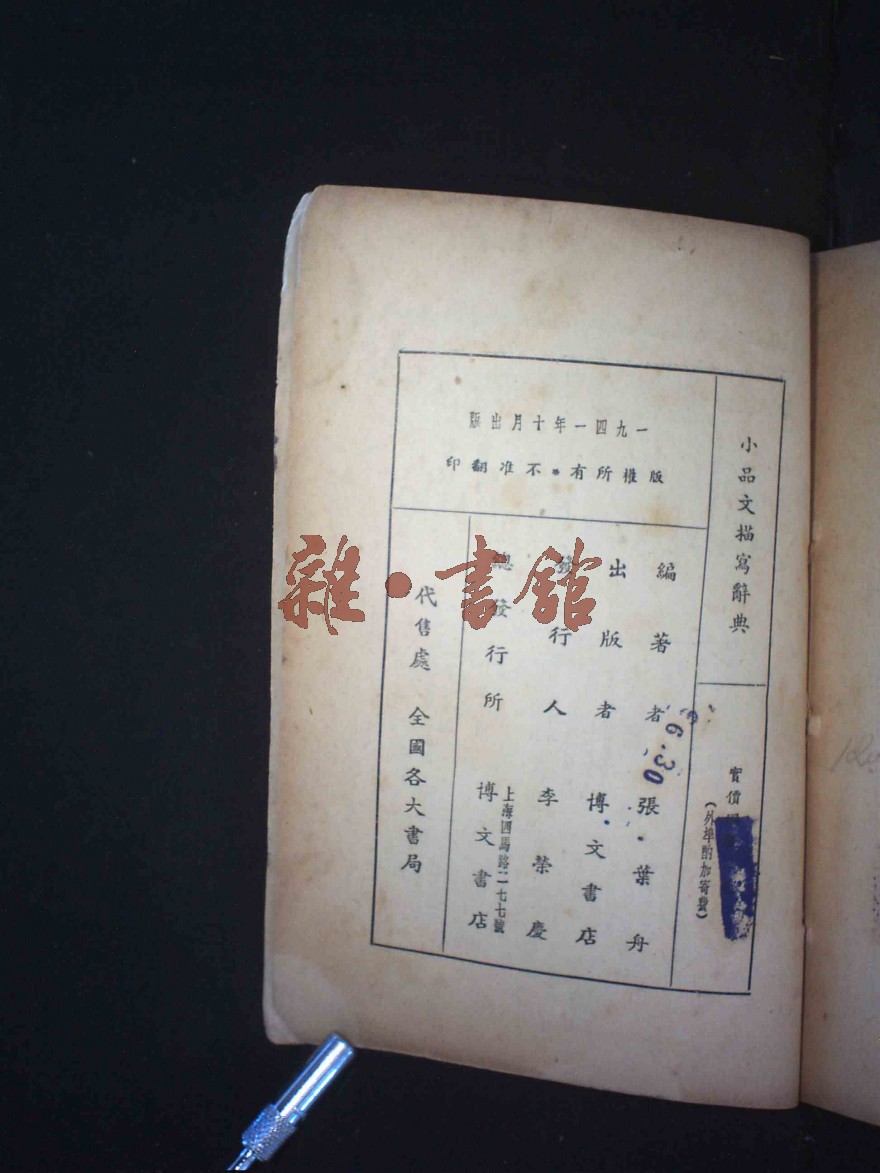 小品文描寫辭典
實價
（外埠酌加寄費）
一九四一年十月出版
版權所有・不准翻印
編著者 張葉舟
出版者 博文書店
發行人 李榮慶
總發行所 博文書店
上海四馬路二七七號
代售處 全國各大書局
6.30
雜·書館